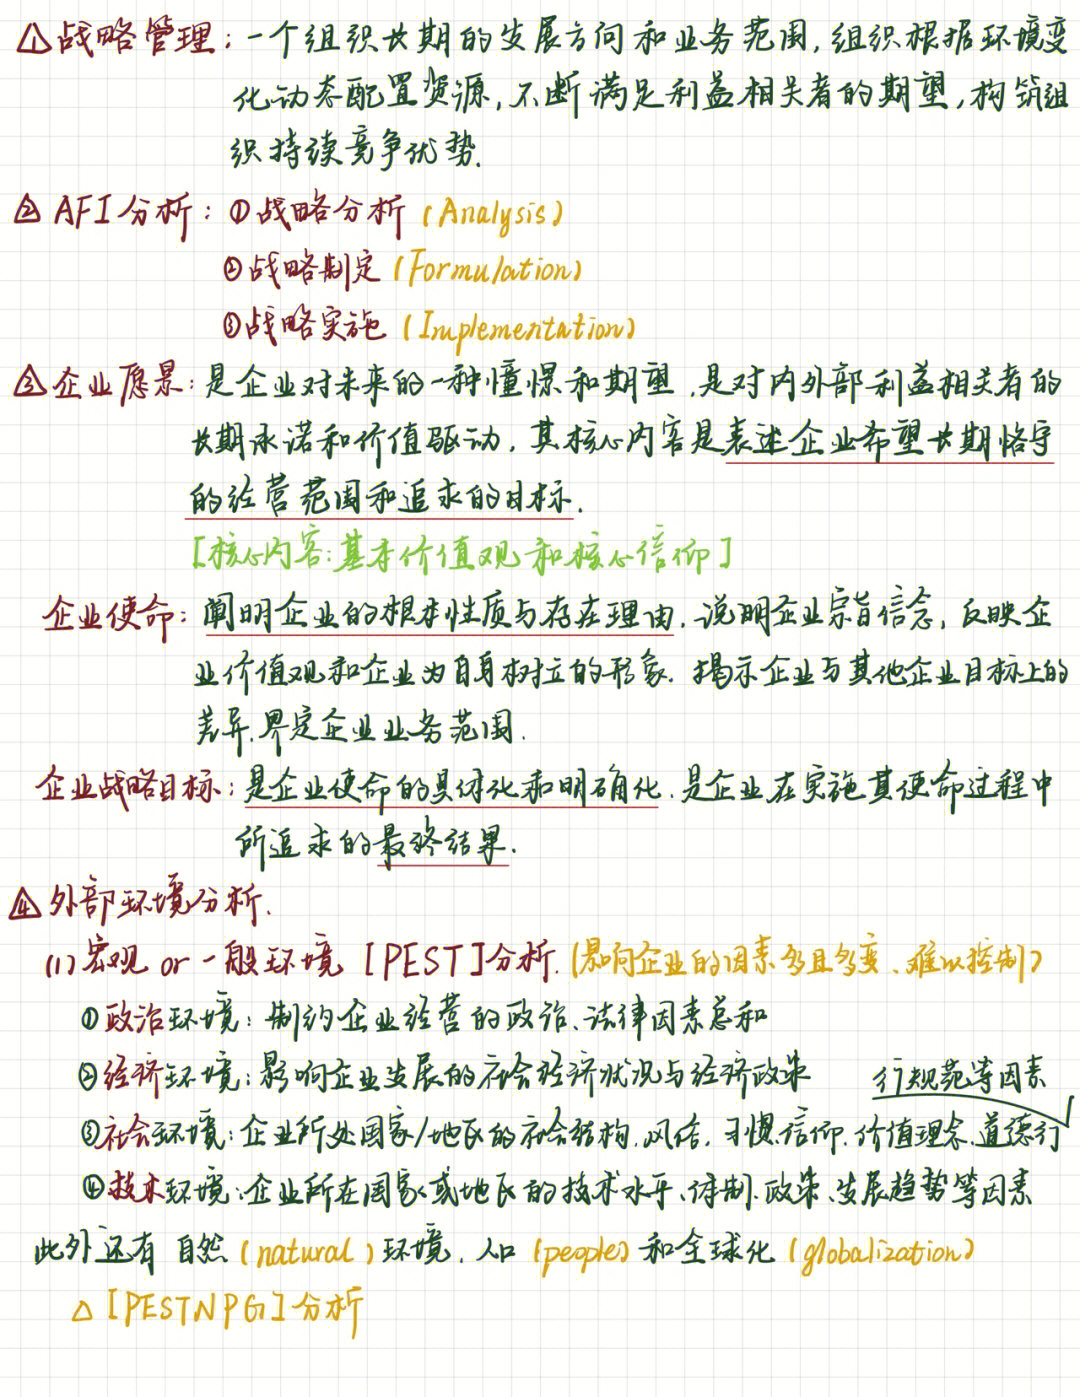 ① 战略管理：一个组织长期的发展方向和业务范围，组织根据环境变
化动态配置资源，不断满足利益相关者的期望，构筑组
织持续竞争优势.
② AFI分析：①战略分析（Analysis）
②战略制定（Formulation）
③战略实施（Implementation）
③ 企业愿景：是企业对未来的一种憧憬和期望，是对内外部利益相关者的
长期承诺和价值驱动，其核心内容是表述企业希望长期恪守
的经营范围和追求的目标.
[核心内容：基本价值观和核心信仰]
企业使命：阐明企业的根本性质与存在理由，说明企业宗旨信念，反映企
业价值观和企业为自身树立的形象. 揭示企业与其他企业目标上的
差异.界定企业业务范围.
企业战略目标：是企业使命的具体化和明确化.是企业在实施其使命过程中
所追求的最终结果.
④ 外部环境分析.
(1) 宏观 or 一般环境 [PEST]分析.（影响企业的因素多且多变、难以控制）
①政治环境：制约企业经营的政治、法律因素总和
②经济环境：影响企业发展的社会经济状况与经济政策 行规范等因素
③社会环境：企业所处国家/地区的社会结构.风俗.习惯.信仰.价值理念.道德行
④技术环境：企业所在国家或地区的技术水平、体制、政策、发展趋势等因素
此外还有 自然（natural）环境、人口（people）和全球化（globalization）
△ [PESTNPG]分析